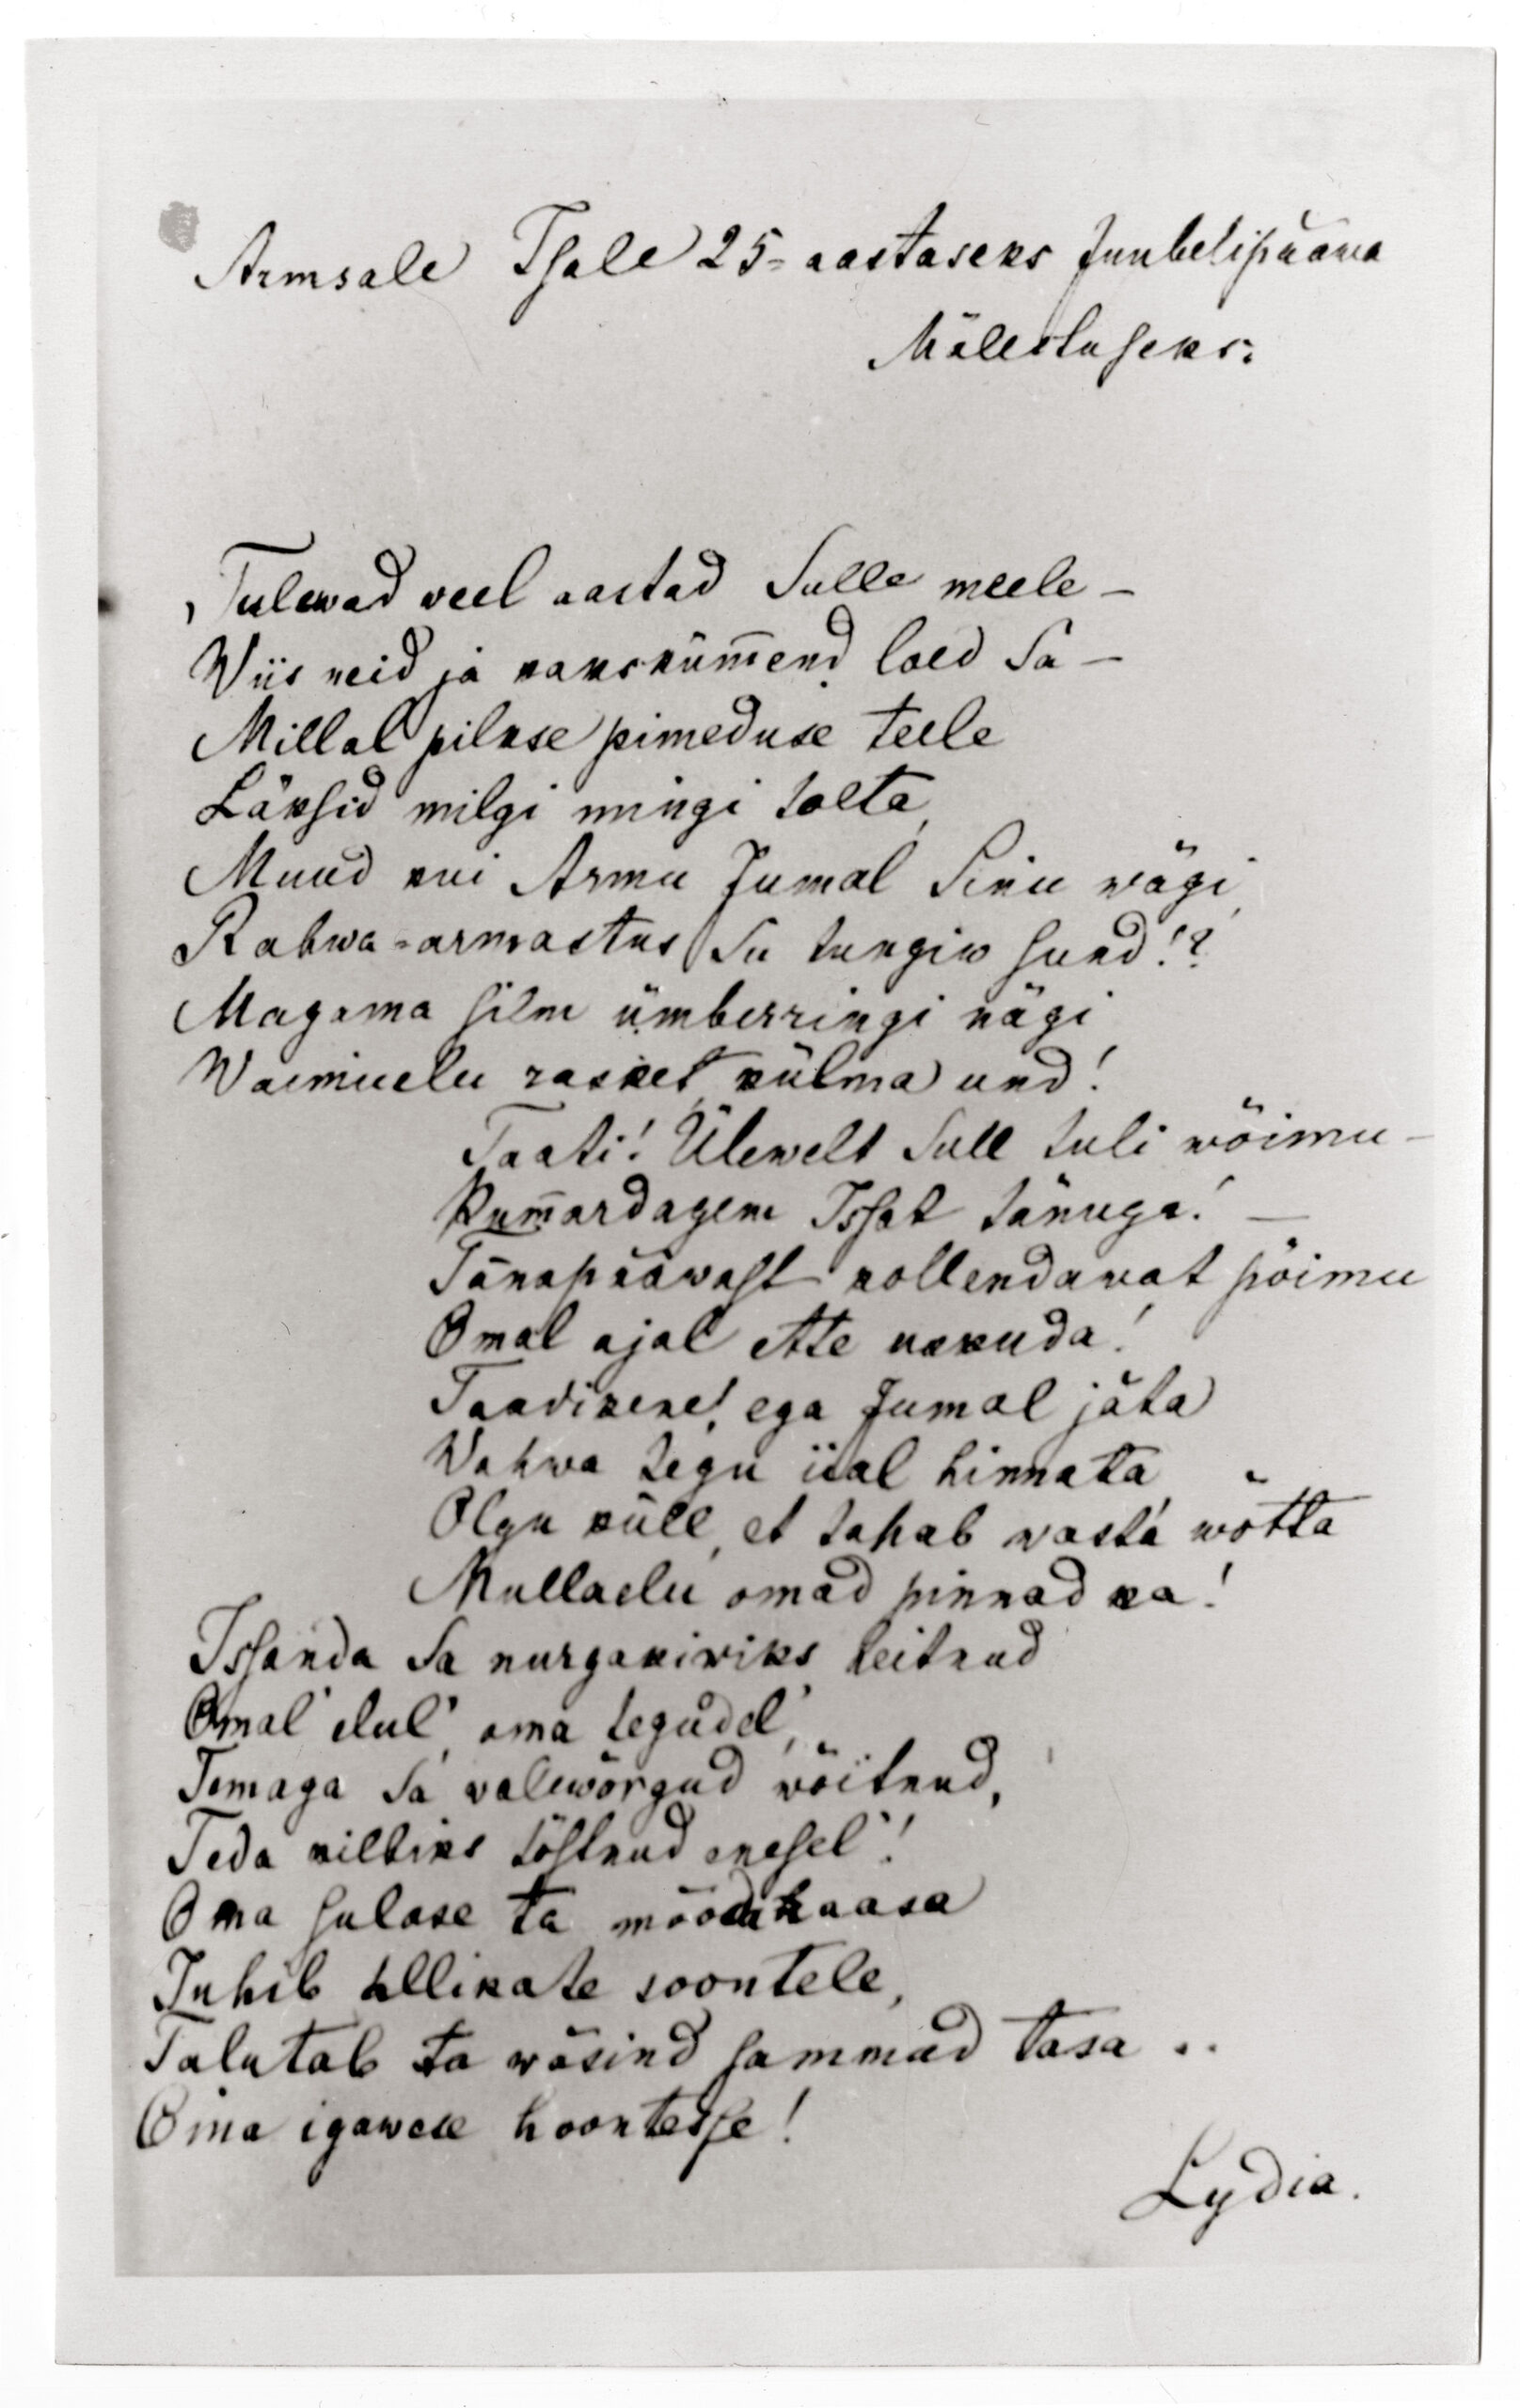 Armsale Isale 25-aastaseks Juubelipääwa
Mälestuseks.
Tulewad weel aastad Sulle meele –
Wiis neid ja kakskümmend loed Sa –
Millal pilkse pimeduse teele
Läksid milgi mingi toeta,
Muud kui Armu Jumal Sinu wägi,
Rahwa-armastus Su tungiw sund!?
Magama silm ümberringi nägi
Waimuelu rasket, külma und!
Taati! Ülewelt Sull tuli wõimu –
Kummardagem Issat tänuga! –
Tänapääwast kollendawat põimu
Omal ajal ette kuuda!
Taadikene! ega Jumal jäta
Wahwa tegu iial hinnata,
Olgu küll, et tahab wasta wõtta
Mullaelu omad pinnad ka!
Issanda Sa nurgakiwiks heitnud
Omal' elul', oma tegudel',
Temaga Sa walewõrgud wõitnud,
Teda kilbiks tõstnud enesel'!
Oma sulase ta mööda kaasa
Juhib hllikate soontele,
Talutab ta wäsind sammud tasa ..
Oma igawese hoontesse!
Lydia.